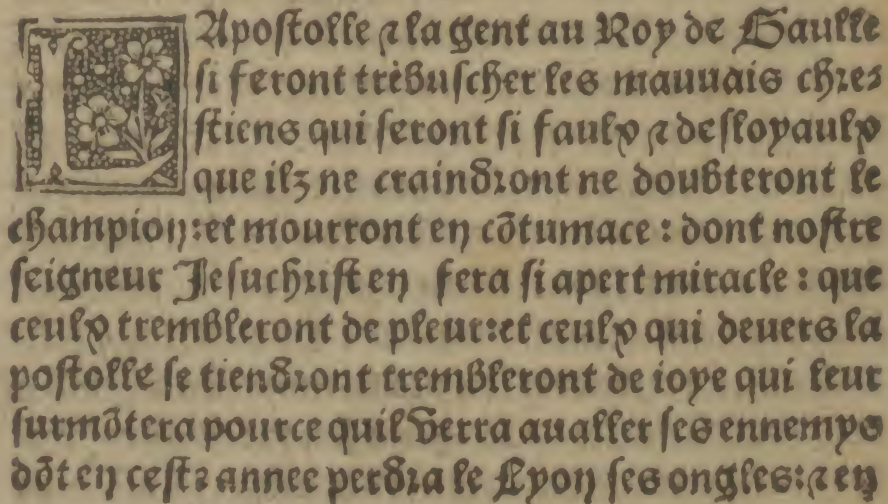 LApostolle ⁊ la gent au Roy de Gaulle
si feront trèbuscher les mauuais chre⸗
stiens qui seront si faulx ⁊ desloyaulx
que ilz ne craindront ne doubteront le
champion:et mourront en cõtumace : dont nostre
seigneur Jesuchrist en fera si apert miracle : que
ceulx trembleront de pleur:et ceulx qui deuers la
postolle se tiendront trembleront de ioye qui leur
surmõtera pource quil verra aualler ses ennemys
dõt en ceste annee perdra le Lyon ses ongles:⁊ en